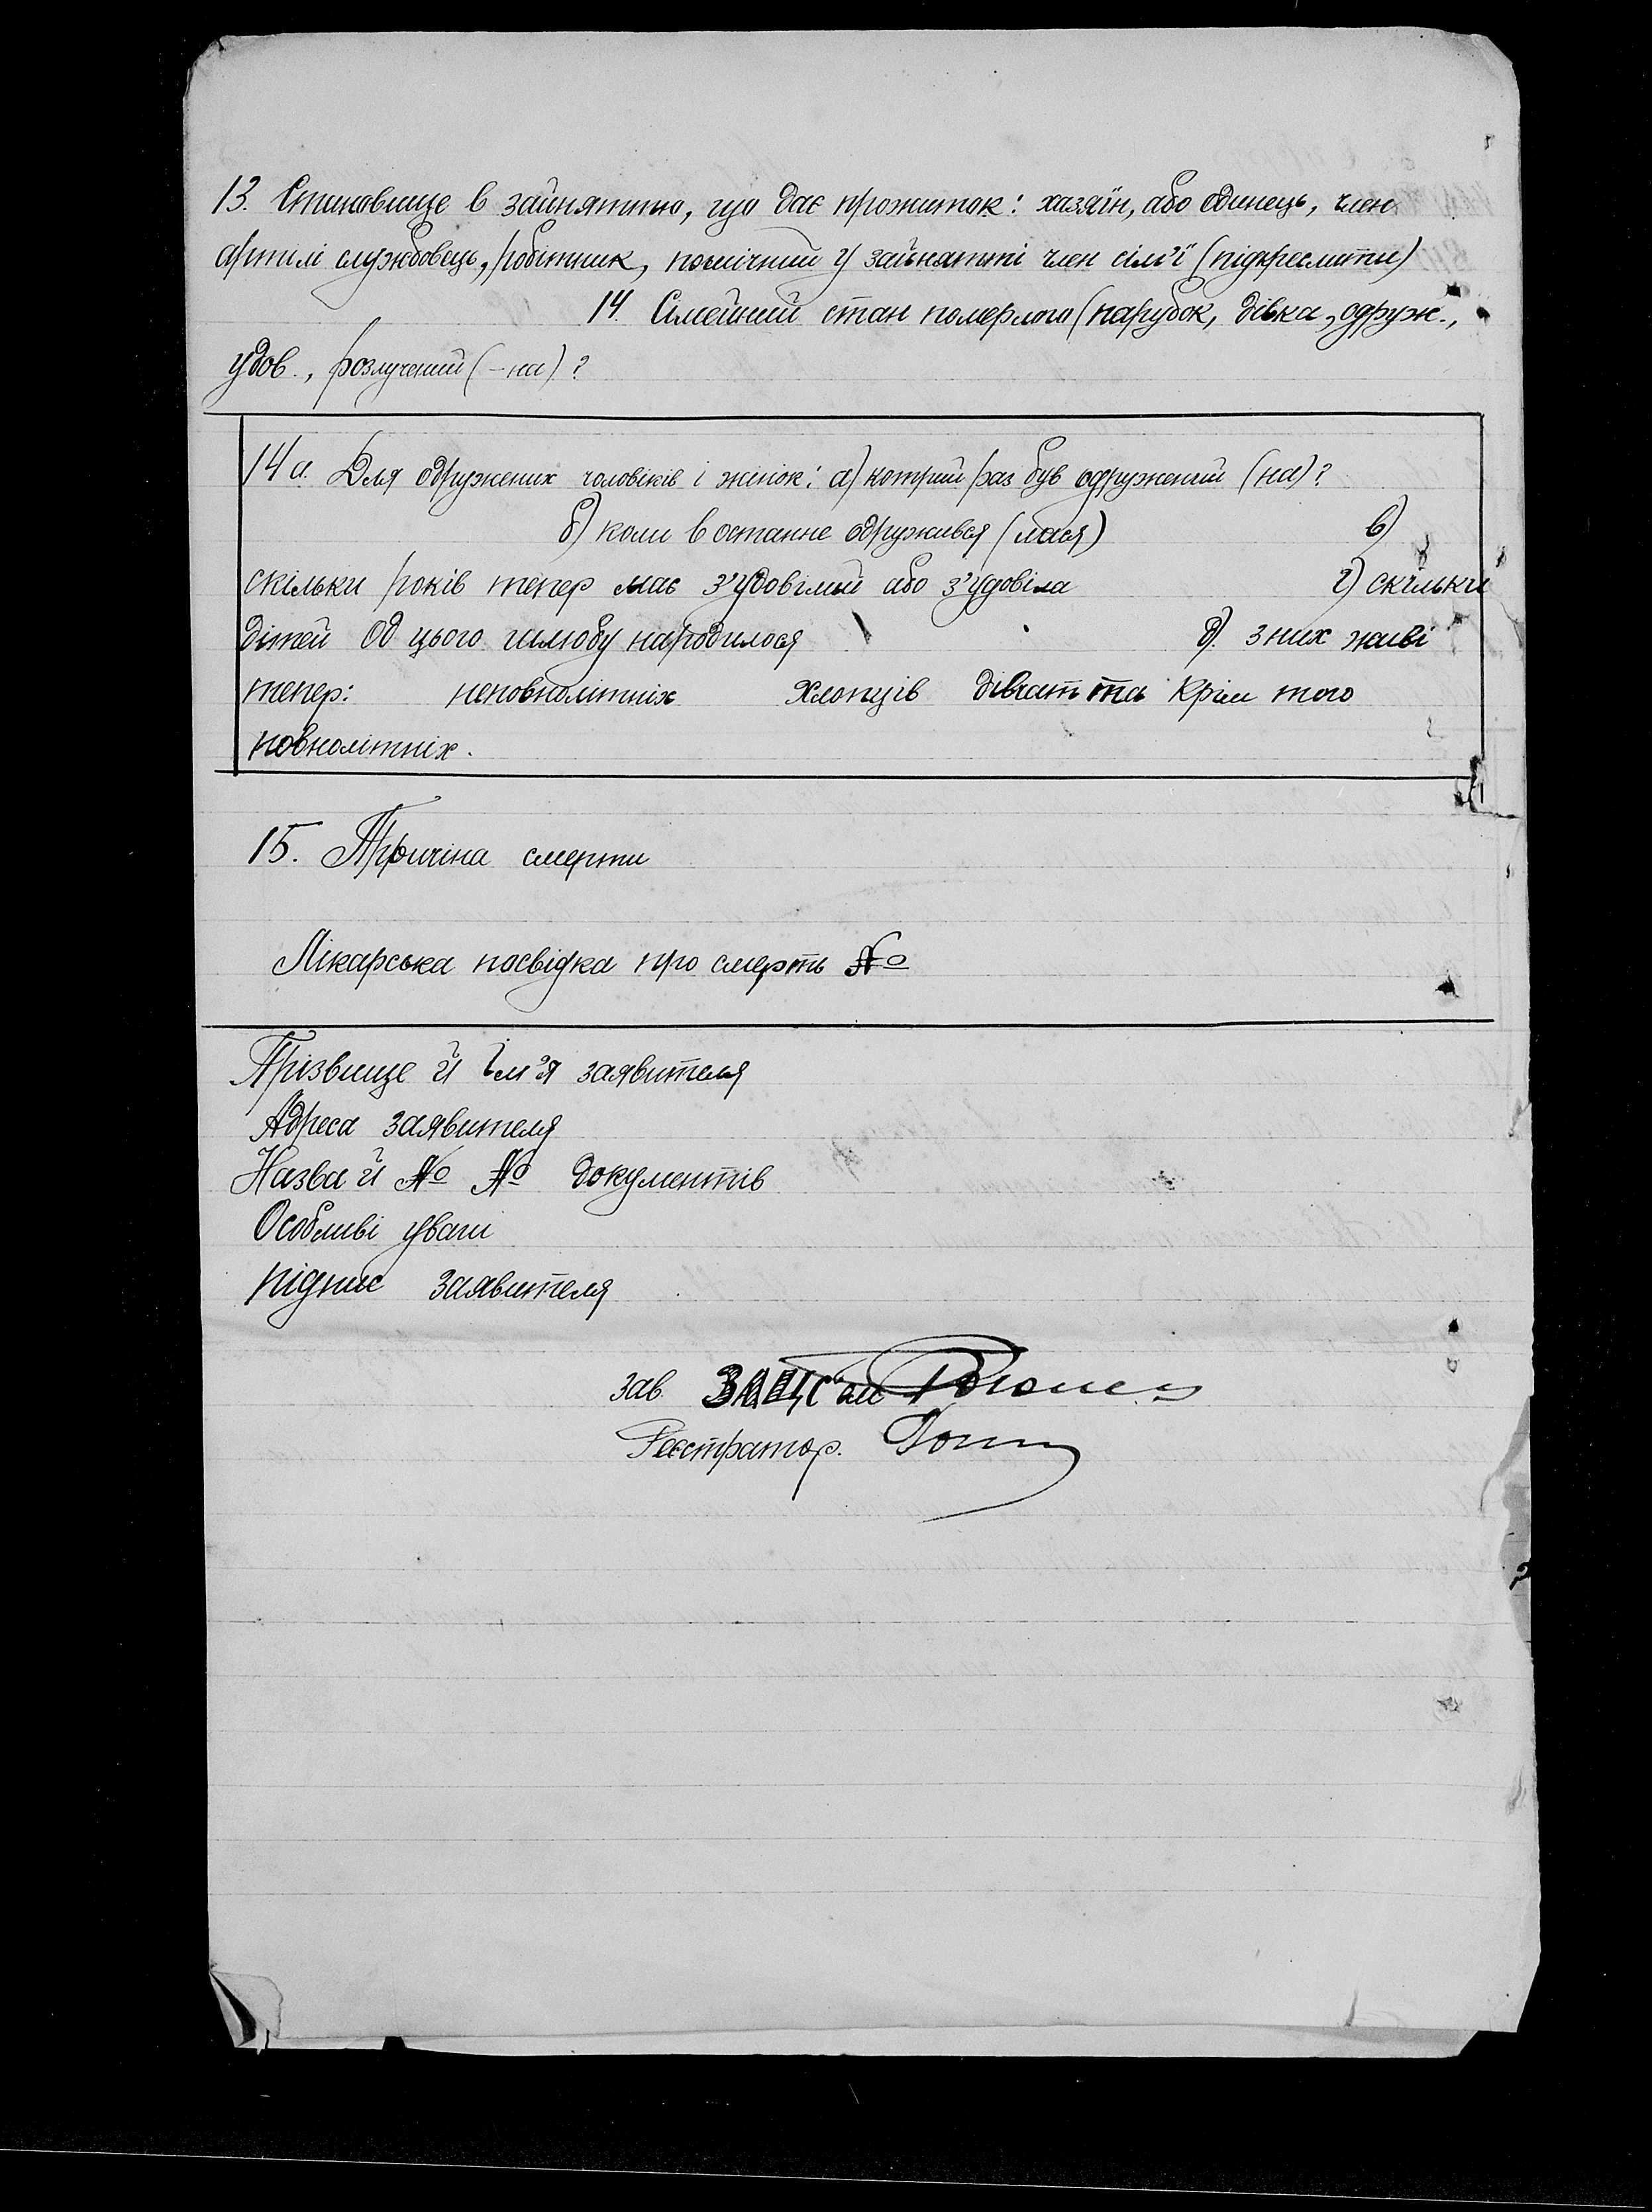 13. Становище в зайняттю, що дає прожиток: хазяїн, або одинець, член
артілі службовець, робітник, помічний у зайнятті член сім'ї (підкреслити)
14. Сімейний стан померлого (парубок, дівка, одруж.,
удов., розлучений (-на)?
14а. Для одружених чоловіків і жінок: а) котрий раз був одружений (на)?
б) коли в останне одружився (лася) в)
скільки років тепер має з'удовілий або з'удовіла г) скільки
дітей од цього шлюбу народилося д). з них живі
тепер: неповнолітніх хлопців дівчат та крім того
повнолітніх.
15. Причіна смерти
Лікарська посвідка про смерть №
Прізвище й ім'я заявителя
Адреса заявителя
Назва й № № документів
Особливі уваги
підпис заявителя
зав. ЗАЦС'ом
Реєстратор.